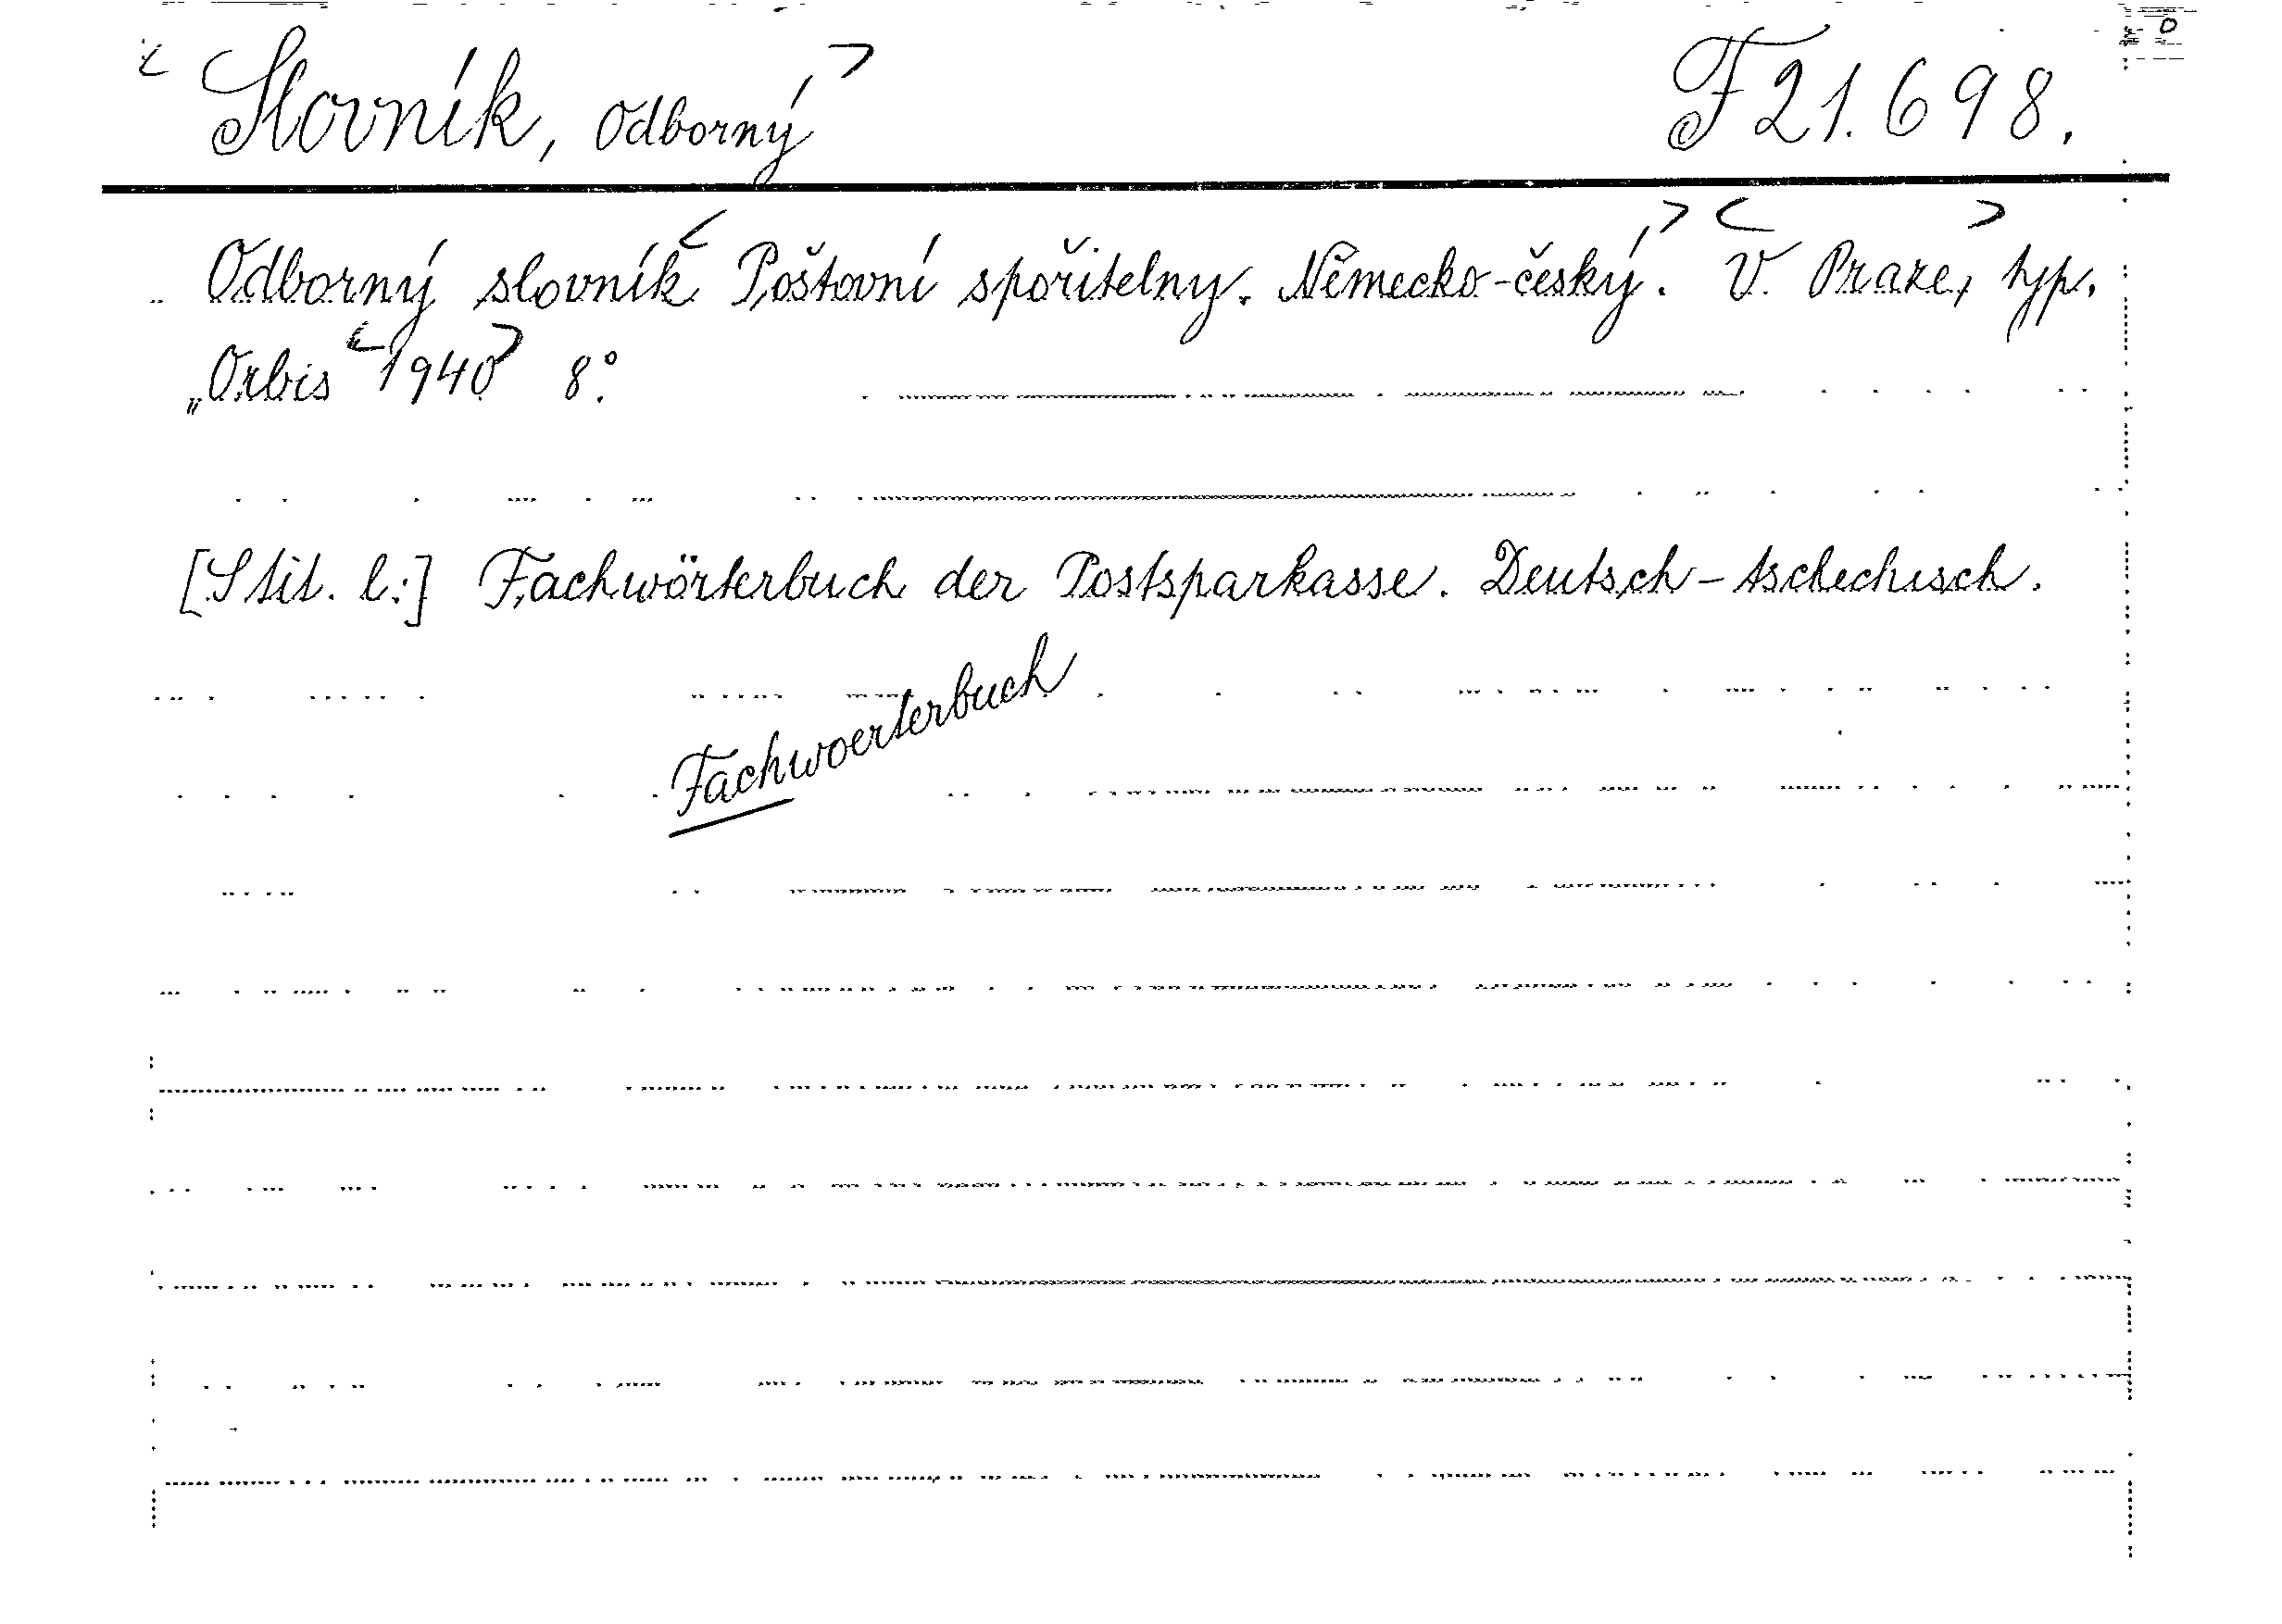 Slovník, Odborný F 21.698.
Odborný slovník Poštovní spořitelny. Německo-český. V Praze, typ.
„Orbis“ 1940 8°.
[S tit. l.:] Fachwörterbuch der Postsparkasse. Deutsch-tschechisch.
Fachwoerterbuch